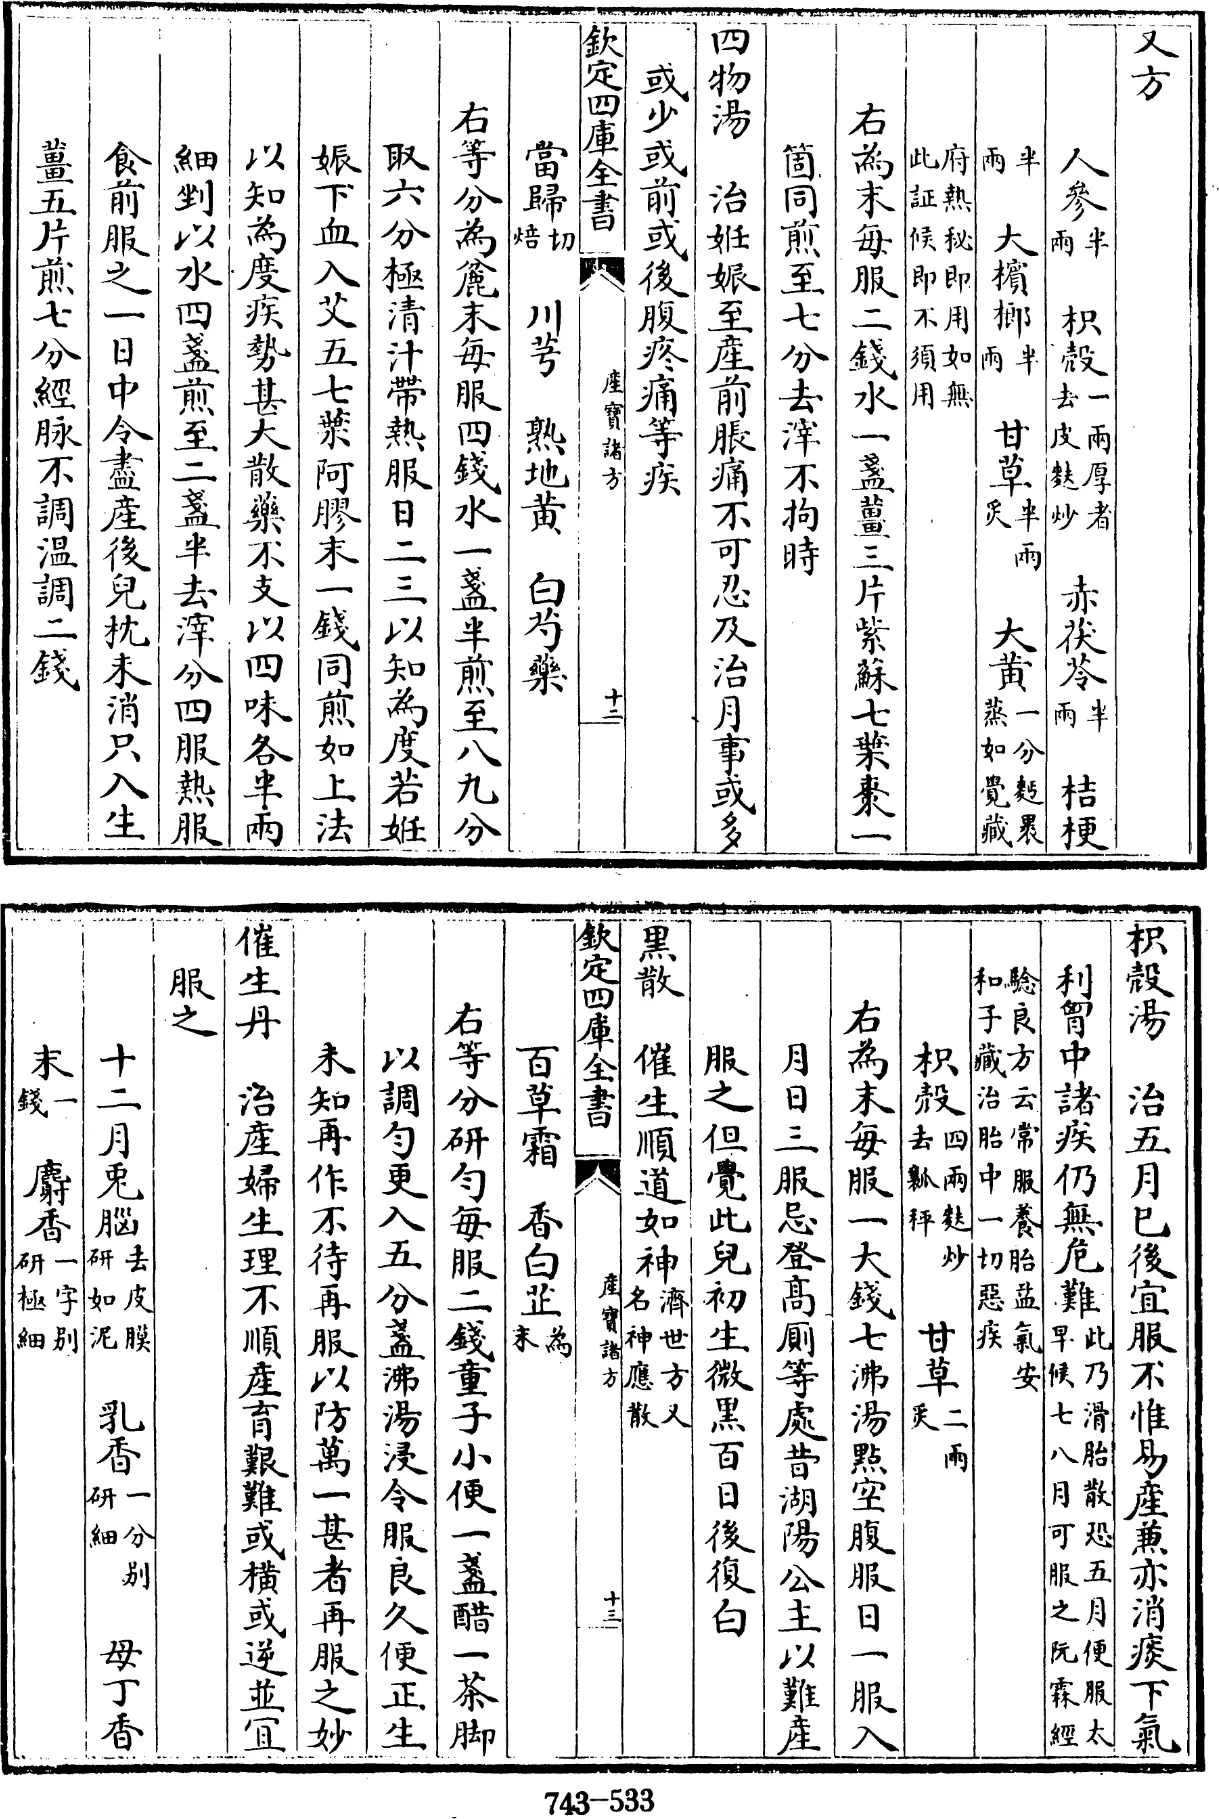 又方
人參半兩 枳殻一兩厚者去皮麩炒 赤茯苓半兩 桔梗
半兩 大檳榔半兩 甘草半兩炙 大黄一分麪褁蒸如覺藏
府熱秘即用如無此証候即不須用
右為末每服二錢水一盞薑三片紫蘇七葉棗一
箇同煎至七分去滓不拘時
四物湯 治妊娠至産前脹痛不可忍及治月事或多
或少或前或後腹疼痛等疾
欽定四庫全書 産寶諸方 十二
當歸切焙 川芎 熟地黄 白芍藥
右等分為麄末每服四錢水一盞半煎至八九分
取六分極清汁帶熱服日二三以知為度若妊
娠下血入艾五七葉阿膠末一錢同煎如上法
以知為度疾勢甚大散藥不支以四味各半兩
細剉以水四盞煎至二盞半去滓分四服熱服
食前服之一日中令盡産後兒枕未消只入生
薑五片煎七分經脉不調温調二錢
枳殻湯 治五月已後宜服不惟易産兼亦消痰下氣
利胷中諸疾仍無危難此乃滑胎散恐五月便服太早候七八月可服之阮霖經
驗良方云常服養胎益氣安和子藏治胎中一切惡疾
枳殻四兩麩炒去瓤秤 甘草二兩炙
右為末每服一大錢七沸湯點空腹服日一服入
月日三服忌登髙厠等處昔湖陽公主以難産
服之但覺此兒初生微黑百日後復白
黑散 催生順道如神濟世方又名神應散
欽定四庫全書 産寶諸方 十三
百草霜 香白芷為末
右等分研勻每服二錢童子小便一盞醋一茶脚
以調勻更入五分盞沸湯浸令服良久便正生
未知再作不待再服以防萬一甚者再服之妙
催生丹 治産婦生理不順産育艱難或横或逆並宜
服之
十二月兎腦去皮膜研如泥 乳香一分别研細 母丁香
末一錢 麝香一字别研極細
743-533